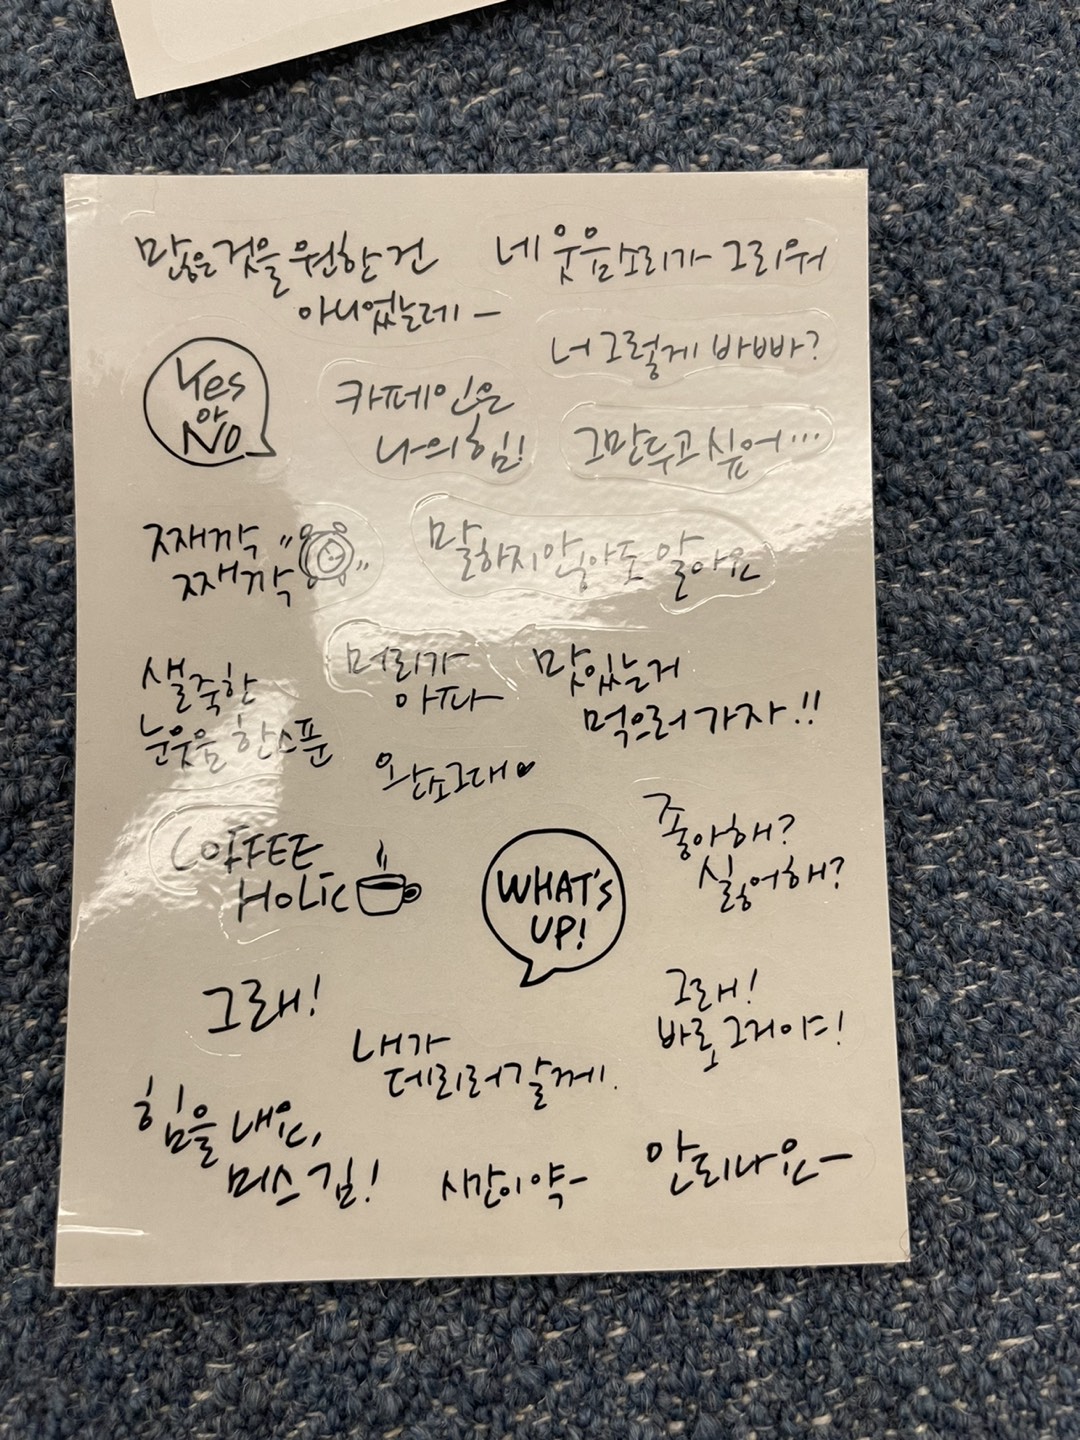 많은것을 원한건
아니었는데 -
네 웃음소리가 그리워
너 그렇게 바빠?
Yes
or
NO
카페인은
나의 힘!
그만두고 싶어...
째깍
째깍
말하지 않아도 알아요
샐쭉한
눈웃음 한스푼
머리가
아파
맛있는거
먹으러 가자!!
완소그대♥
COFFEE
HOLIC
WHAT'S
UP!
좋아해?
싫어해?
그래!
내가
데리러 갈께.
그래!
바로 그거야!
힘을 내요,
미스 김!
시간이 약-
안되나요-